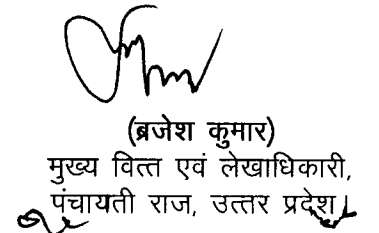 (ब्रजेश कुमार)
मुख्य वित्त एवं लेखाधिकारी,
पंचायती राज, उत्तर प्रदेश।